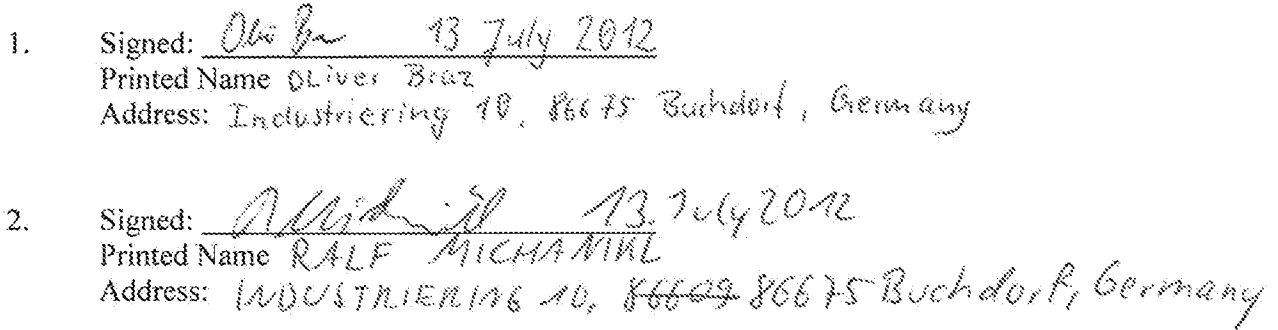 1. Signed: 13 July 2012
Printed Name Oliver Braz
Address: Industriering 10, 86675 Buchdorf, Germany
2. Signed: 13. July 2012
Printed Name RALF
Address: INDUSTRIERING 10, 86609 86675 Buchdorf, Germany